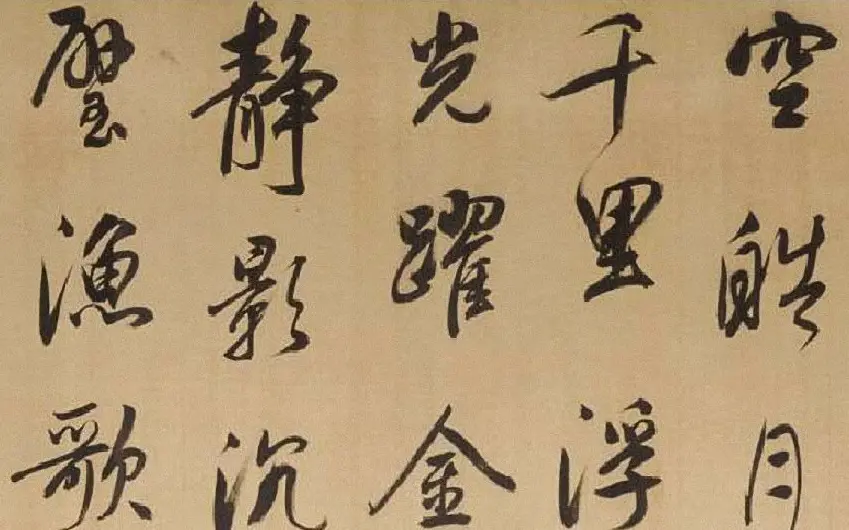 空皓月
千里浮
光躍金
靜影沉
璧漁歌